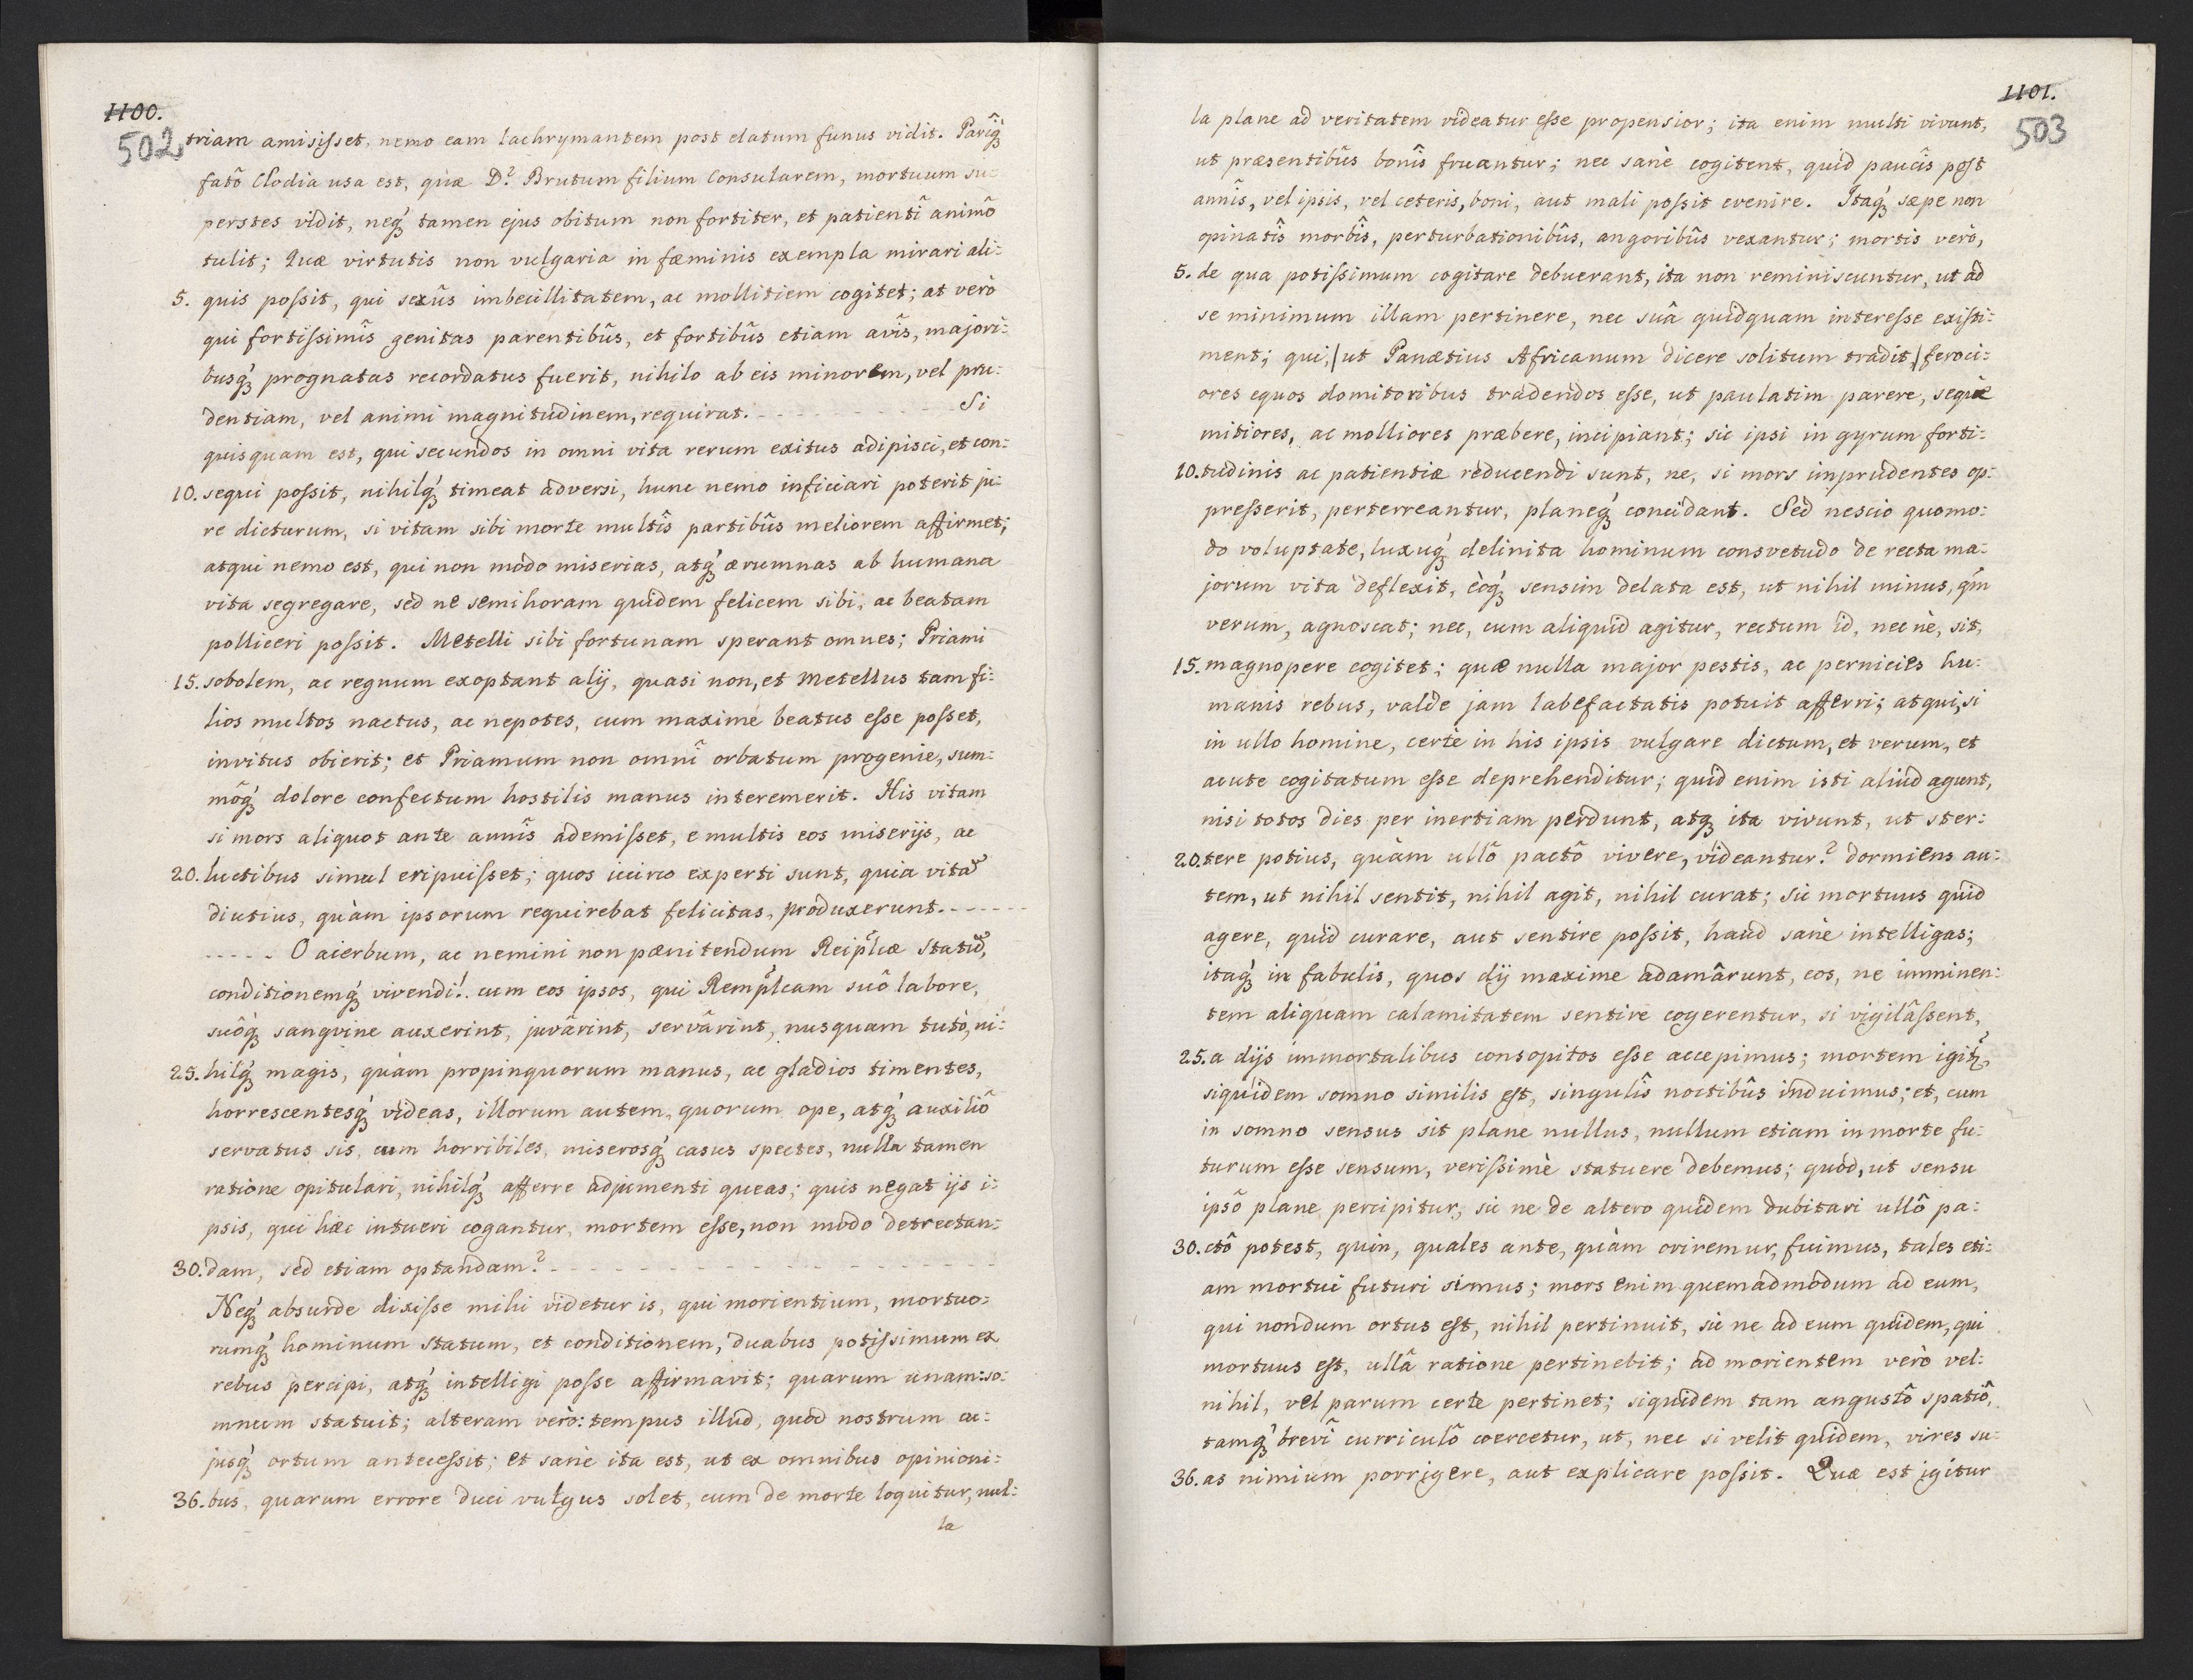 1100.
502
triam amisisset, nemo eam lachrymantem post elatum funus vidit. Pariq́
fatô Clodia usa est, quæ D.? Brutum filium Consularem, mortuum su=
perstes vidit, neq́ tamen ejus obitum non fortiter, et patientî animô
tulit; Quæ virtutis non vulgaria in fæminis exempla mirari ali=
5. quis possit, qui sexûs imbecillitatem, ac mollitiem cogitet; at verò
qui fortissimîs genitas parentibûs, et fortibûs etiam avîs, majori=
busq́ prognatas recordatus fuerit, nihilo ab eis minorem, vel pru=
dentiam, vel animi magnitudinem, requirat. - - - - - - - - - - Si
quisquam est, qui secundos in omni vita rerum exitus adipisci, et con=
10. sequi possit, nihilq́ timeat adversi, hunc nemo inficiari poterit ju=
re dicturum, si vitam sibi morte multîs partibûs meliorem affirmet;
atqui nemo est, qui non modo miserias, atq́ ærumnas ab humana
vita segregare, sed ne semihoram quidem felicem sibi, ac beatam
polliceri possit. Metelli sibi fortunam sperant omnes; Priami
15. sobolem, ac regnum exoptant alij, quasi non, et Metellus tam fi=
lios multos nactus, ac nepotes, cum maximè beatus esse posset,
invitus obierit; et Priamum non omnî orbatum progenie, sum=
môq́ dolore confectum hostilis manus interemerit. His vitam
si mors aliquot ante annîs ademisset, e multis eos miserijs, ac
20. luctibus simul eripuisset; quos icirco experti sunt, quia vitã
diutius, quàm ipsorum requirebat felicitas, produxerunt. - - - - -
- - - - - O acerbum, ac nemini non pænitendum Reiplcæ statũ,
conditionemq́ vivendi!. cum eos ipsos, qui Remplcam suô labore,
suôq́ sangvine auxerint, juvârint, servârint, nusquam tutò, ni=
25. hilq́ magis, quàm propinquorum manus, ac gladios timentes,
horrescentesq́ videas, illorum autem, quorum ope, atq́ auxiliô
servatus sis, cum horribiles, miserosq́ casus spectes, nulla tamen
ratione opitulari, nihilq́ afferre adjumenti queas; quis negat ijs i=
psis, qui hæc intueri cogantur, mortem esse, non modo detrectan=
30. dam, sed etiam optandam? - - - - - - - - - - - - - - - -
Neq́ absurde dixisse mihi videtur is, qui morientium, mortuo=
rumq́ hominum statum, et conditionem, duabus potissimum ex
rebus percipi, atq́ intelligi posse affirmavit; quarum unam: so=
mnum statuit; alteram verò: tempus illud, quod nostrum cu=
jusq́ ortum antecessit; et sanè ita est, ut ex omnibus opinioni=
36. bus, quarum errore duci vulgus solet, cum de morte loquitur, nul=
la
1101.
503
la plane ad veritatem videatur esse propensior; ita enim multi vivunt,
ut præsentibûs bonîs fruantur; nec sanè cogitent, quid paucîs post
annîs, vel ipsis, vel ceteris, boni, aut mali possit evenire. Itaq́ sæpe non
opinatîs morbîs, perturbationibûs, angoribûs vexantur; mortis verò,
5. de qua potissimum cogitare debuerant, ita non reminiscuntur, ut ad
se minimum illam pertinere, nec suâ quidquam interesse existi=
ment; qui,/ut Panætius Africanum dicere solitum tradit,/feroci=
ores equos domitoribus tradendos esse, ut paulatim parere, seque
mitiores, ac molliores præbere, incipiant; sic ipsi in gyrum forti=
10. tudinis ac patientiæ reducendi sunt, ne, si mors imprudentes op=
presserit, perterreantur, planeq́ concidant. Sed nescio quomo=
do voluptate, luxuq́ delinita hominum consvetudo de recta ma=
jorum vita deflexit, eòq́ sensim delata est, ut nihil minus, qm̃
verum, agnoscat; nec, cum aliquid agitur, rectum id, nec nè, sit,
15. magnopere cogitet; quæ nulla major pestis, ac pernicies hu=
manis rebus, valde jam labefactatis potuit afferri; atqui, si
in ullo homine, certè in his ipsis vulgare dictum, et verum, et
acute cogitatum esse deprehenditur; quid enim isti aliud agunt,
nisi totos dies per inertiam perdunt, atq́ ita vivunt, ut ster=
20. tere potius, quàm ullô pactô vivere, videantur? dormiens au=
tem, ut nihil sentit, nihil agit, nihil curat; sic mortuus quid
agere, quid curare, aut sentire possit, haud sanè intelligas;
itaq́ in fabulis, quos dij maxime adamârunt, eos, ne imminen=
tem aliquam calamitatem sentire cogerentur, si vigilâssent,
25. a dijs immortalibus consopitos esse accepimus; mortem igitr̃,
siquidem somno similis est, singulîs noctibûs induimus; et, cum
in somno sensus sit plane nullus, nullum etiam in morte fu=
turum esse sensum, verissimè statuere debemus; quod, ut sensu
ipsô plane percipitur, sic ne de altero quidem dubitari ullô pa=
30. ctô potest, quin, quales ante, quàm oriremur, fuimus, tales eti=
am mortui futuri simus; mors enim quemadmodum ad eum,
qui nondum ortus est, nihil pertinuit, sic ne ad eum quidem, qui
mortuus est, ullâ ratione pertinebit; ad morientem verò vel=
nihil, vel parum certe pertinet; siquidem tam angustô spatiô,
tamq́ brevî curriculô coercetur, ut, nec si velit quidem, vires su=
36. as nimium porrigere, aut explicare possit. Quæ est igitur